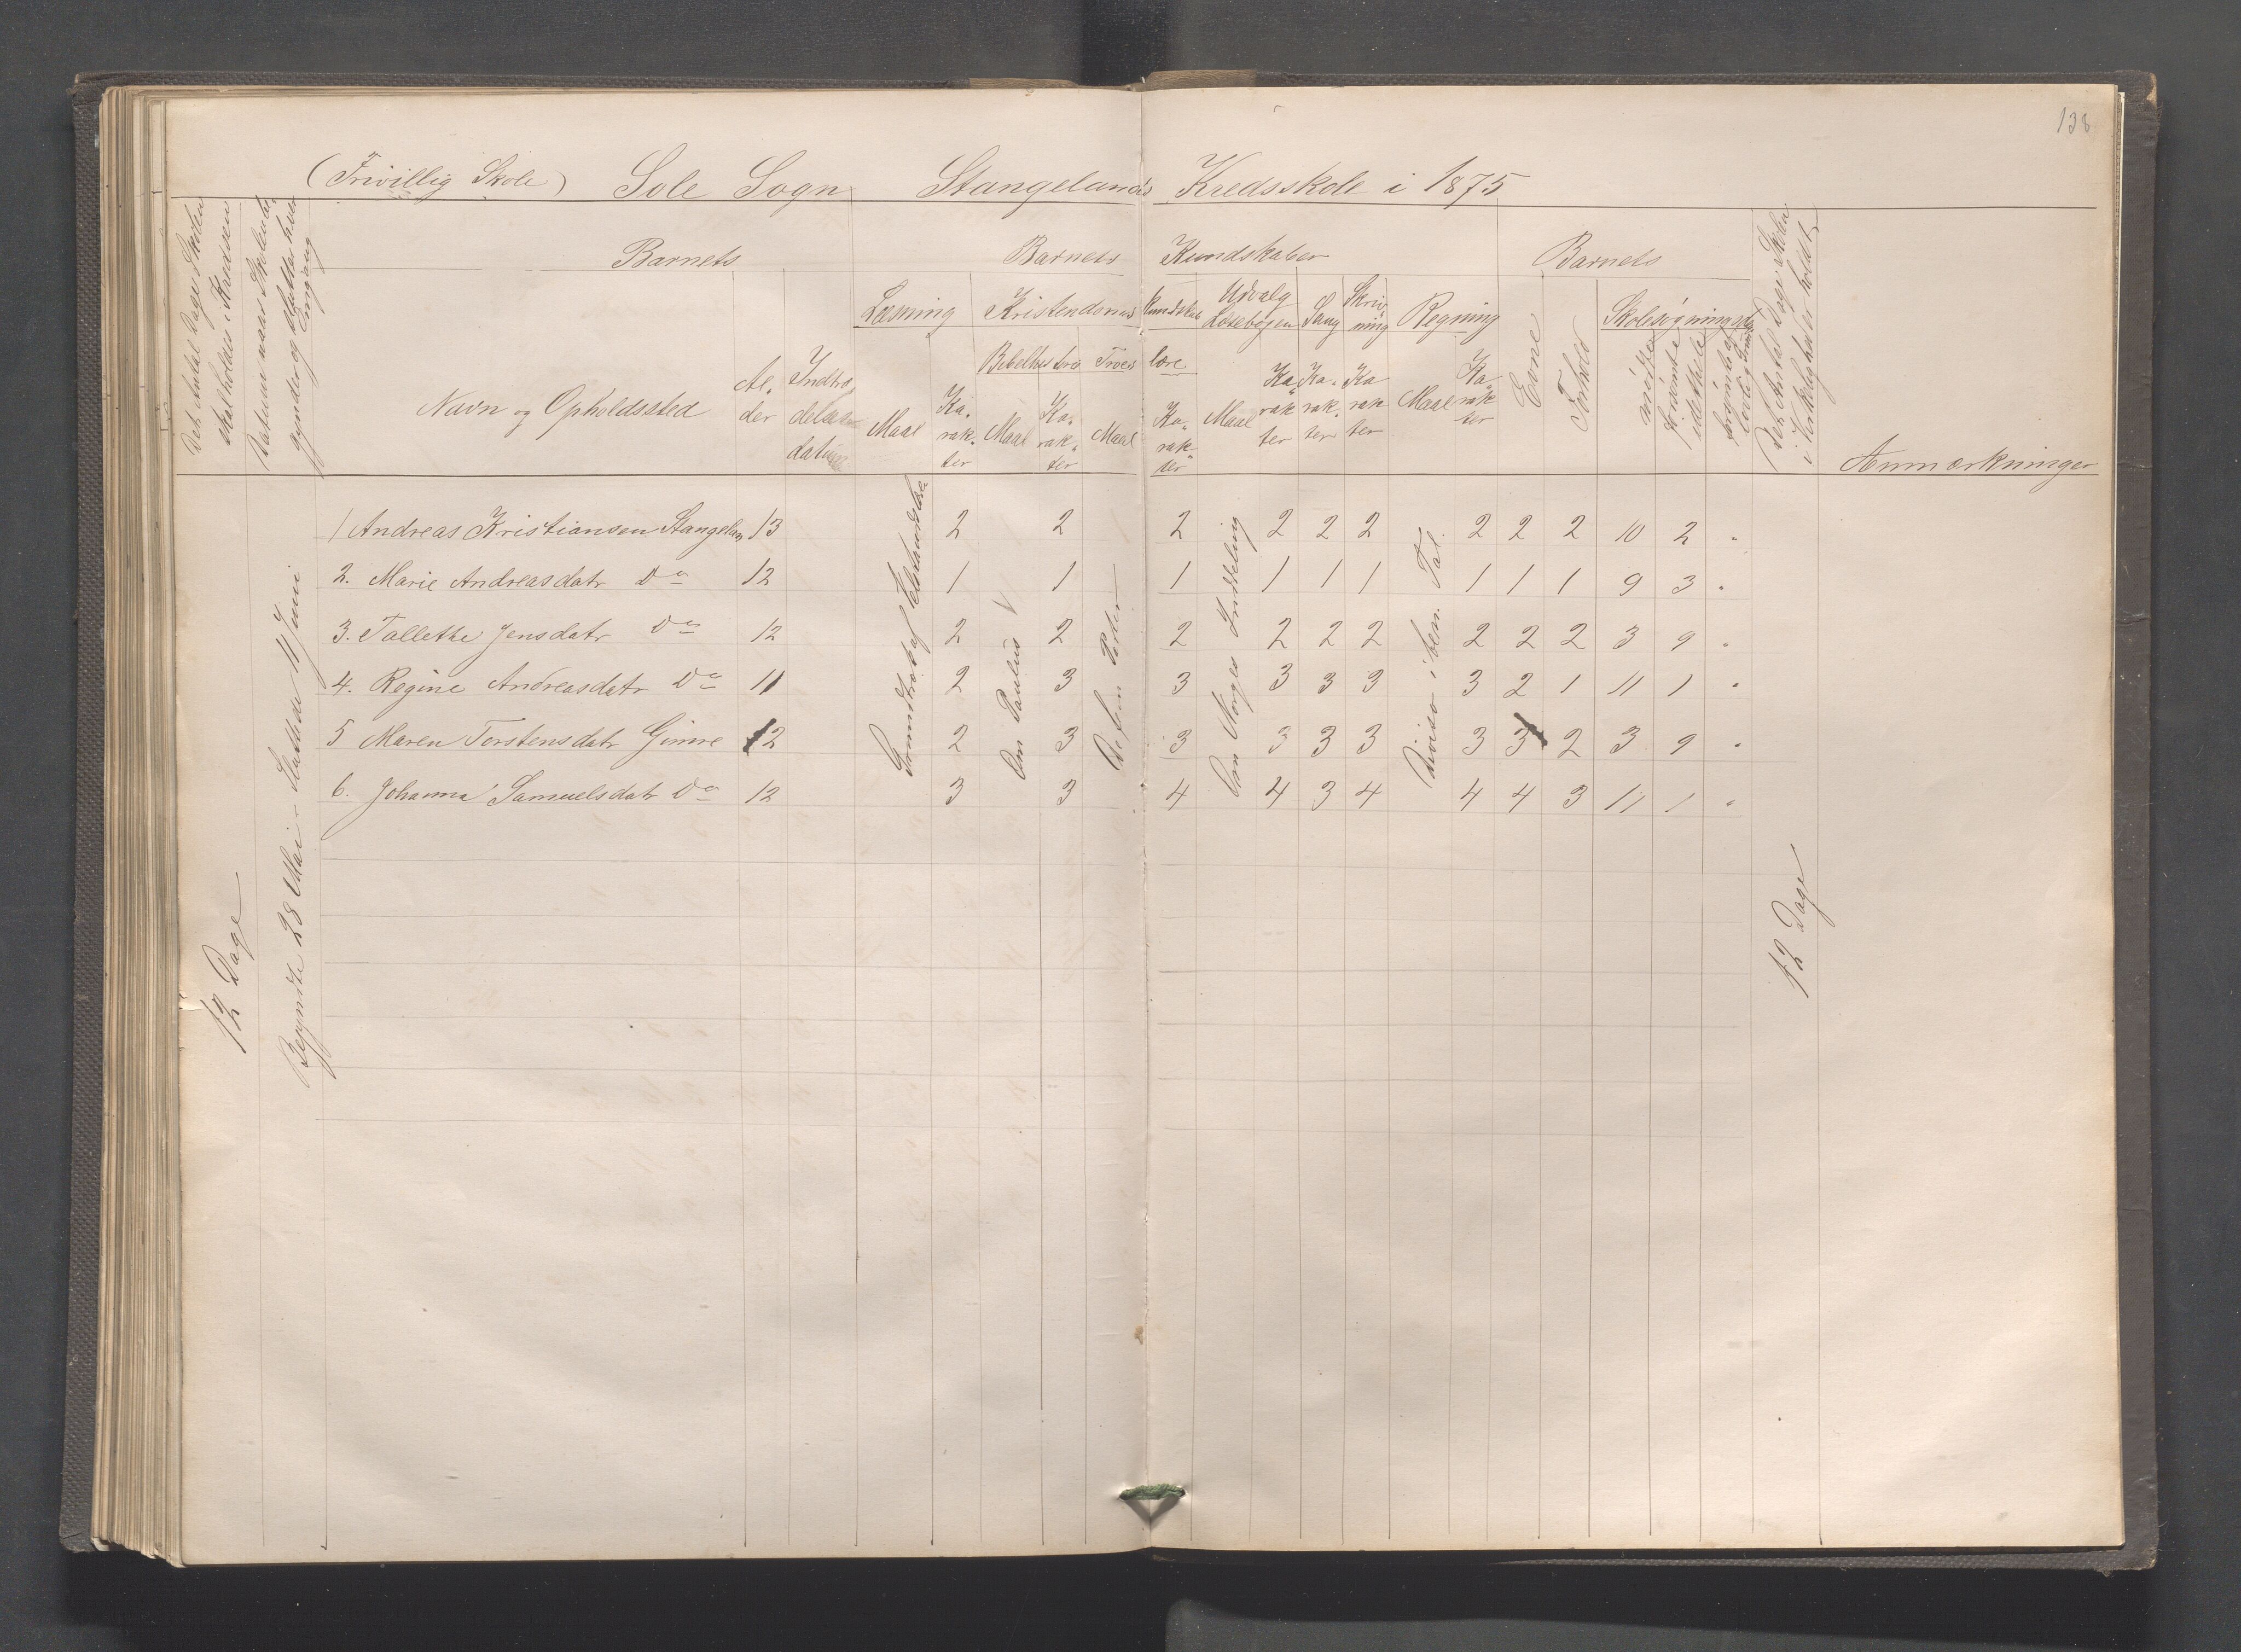 138
(Frivillig Skole) Sole Sogn Stangelands Kredsskole i 1875
Det Antal Dage Skolen skal holdes i Kredsen
Datum naar Skolen begynder og slutter hver Omgang
Barnets
Barnets Kundskaber
Barnets
Det Antal Dage Skolen i Virkelighed er holdt
Læsning Kristendoms kundskab Udvalg Læsebogen Sang Skrivning Regning Evne Forhold Skolesøgningsdage
Bibelhistorie Troeslære
Navn og Opholdssted Alder Indtrædelsesdatum Maal Karakter Maal Karakter Maal Karakter Maal Karakter Karakter Karakter Maal Karakter mødte forsømte
Anmærkninger
12 Dage
Begyndte 28 Mai - Sluttede 11 Juni
Om Paulus
Om Norges Inddeling
Division i ben. Tal.
12 Dage
1 Andreas Kristiansen Stangeland 13 2 2 2 2 2 2 2 2 2 10 2 "
2. Marie Andreasdatr Do 12 1 1 1 1 1 1 1 1 1 9 3 "
3. Tallette Jensdatr Do 12 2 2 2 2 2 2 2 2 2 3 9 "
4. Regine Andreasdatr Do 11 2 3 3 3 3 3 3 2 1 11 1 "
5 Maren Torstensdatr Gimre 12 2 3 3 3 3 3 3 3 2 3 9 "
6. Johanna Samuelsdatr Do 12 3 3 4 4 3 4 4 4 3 11 1 "